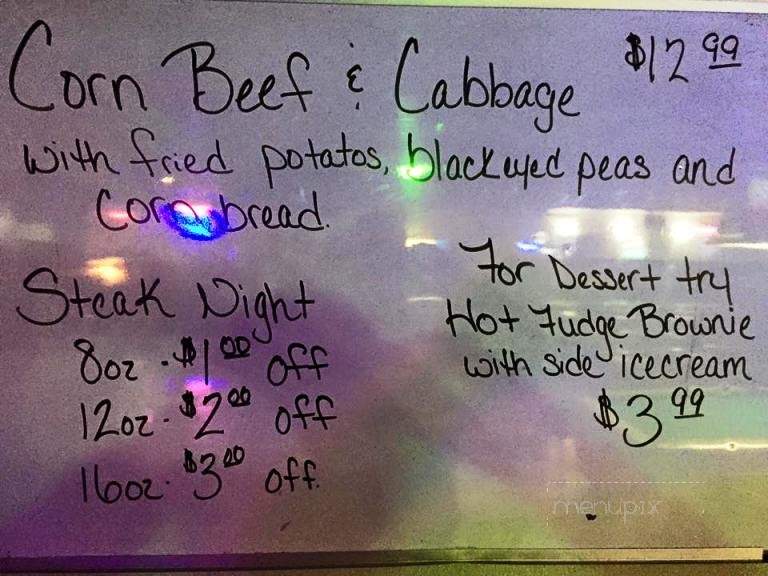 Corn Beef & Cabbage $12.99
with fried potatos, blackeyed peas and
Corn bread.
Steak Night
8oz - $1.00 off
12oz - $2.00 off
16oz - $3.00 off.
For Dessert try
Hot Fudge Brownie
with side icecream
$3.99
menupix